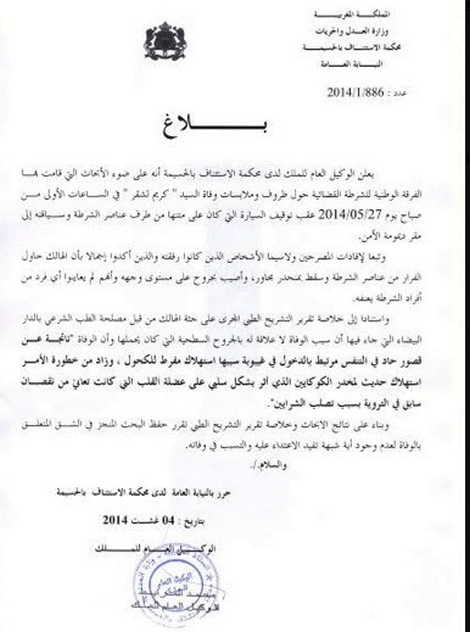 المملكة المغربية
وزارة العدل والحريات
محكمة الاستئناف بالحسيمة
النيابة العامة
عدد : 2014/1/886
بـــــلاغ
يعلن الوكيل العام للملك لدى محكمة الاستئناف بالحسيمة أنه على ضوء الأبحاث التي قامت بها
الفرقة الوطنية للشرطة القضائية حول ظروف وملابسات وفاة السيد "كريم لشقر" في الساعات الأولى من
صباح يوم 2014/05/27 عقب توقيف السيارة التي كان على متنها من طرف عناصر الشرطة وسياقته إلى
مقر ديمومة الأمن.
وتبعا لإفادات المصرحين ولاسيما الأشخاص الذين كانوا رفقته والذين أكدوا إجمالا بأن الهالك حاول
الفرار من عناصر الشرطة وسقط بمنحدر مجاور، وأصيب بجروح على مستوى وجهه وأنهم لم يعاينوا أي فرد من
أفراد الشرطة يعنفه.
واستنادا إلى خلاصة تقرير التشريح الطبي المجرى على جثة الهالك من قبل مصلحة الطب الشرعي بالدار
البيضاء التي جاء فيها أن سبب الوفاة لا علاقة له بالجروح السطحية التي كان يحملها وأن الوفاة "ناتجة عن
قصور حاد في التنفس مرتبط بالدخول في غيبوبة سببها استهلاك مفرط للكحول ، وزاد من خطورة الأمر
استهلاك حديث لمخدر الكوكايين الذي أثر بشكل سلبي على عضلة القلب التي كانت تعاني من نقصان
سابق في التروية بسبب تصلب الشرايين".
وبناء على نتائج الابحاث وخلاصة تقرير التشريح الطبي تقرر حفظ البحث المنجز في الشق المتعلق
بالوفاة لعدم وجود أية شبهة تفيد الاعتداء عليه والتسبب في وفاته.
والسلام./.
حرر بالنيابة العامة لدى محكمة الاستئناف بالحسيمة
بتاريخ : 04 غشت 2014
الوكيل العام للملك
الوكيل العام
للملك
الوكيل العام للملك